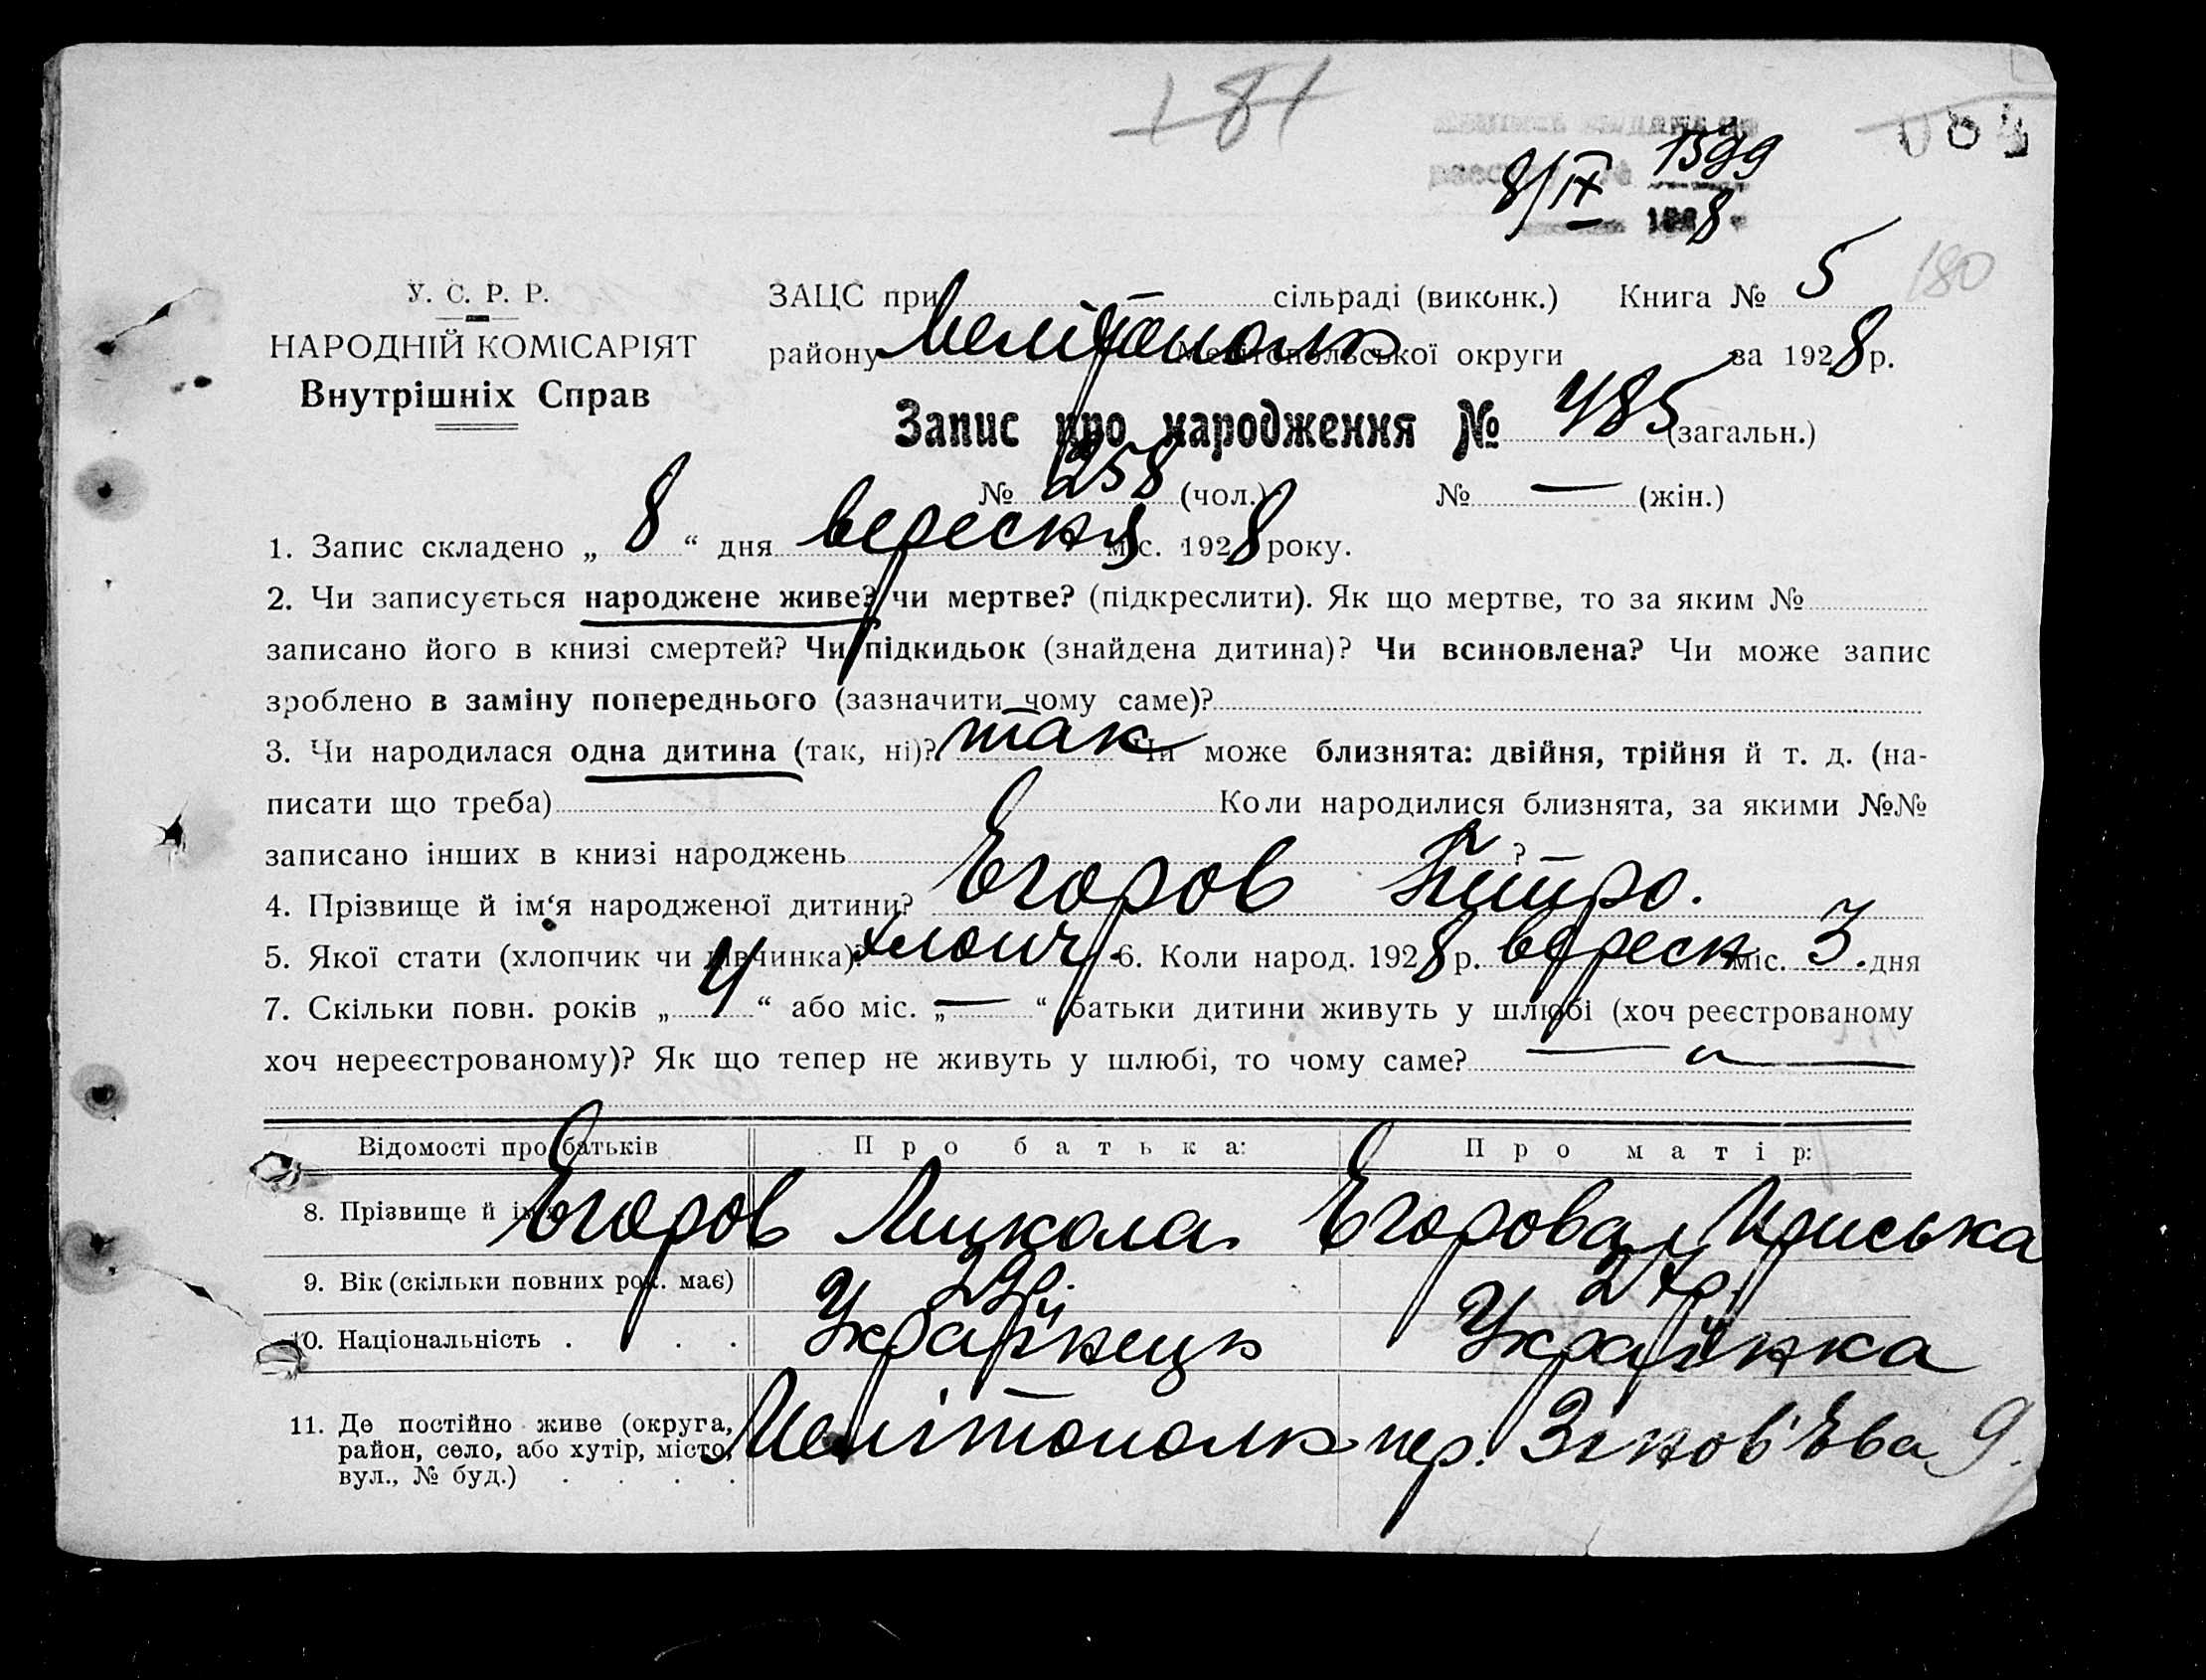 181
8/IX 1599
1928
У. С. Р. Р.
НАРОДНІЙ КОМІСАРІЯТ
Внутрішніх Справ
ЗАЦС при сільраді (виконк.) Книга № 5 180
району Мелітополь Мелітопольської округи за 1928 р.
Запис про народження № 485 (загальн.)
№ 258 (чол.) № — (жін.)
1. Запис складено „ 8 “ дня вересня міс. 1928 року.
2. Чи записується народжене живе? чи мертве? (підкреслити). Як що мертве, то за яким №
записано його в книзі смертей? Чи підкидьок (знайдена дитина)? Чи всиновлена? Чи може запис
зроблено в заміну попереднього (зазначити чому саме)?
3. Чи народилася одна дитина (так, ні)? так Чи може близнята: двійня, трійня й т. д. (на-
писати що треба) Коли народилися близнята, за якими №№
записано інших в книзі народжень ?
4. Прізвище й ім‘я народженої дитини? Єгоров Петро.
5. Якої стати (хлопчик чи дівчинка)? хлопч. 6. Коли народ. 1928 р. вересн міс. 3. дня
7. Скільки повн. років „ 4 “ або міс. „ — “ батьки дитини живуть у шлюбі (хоч реєстрованому
хоч нереєстрованому)? Як що тепер не живуть у шлюбі, то чому саме?
Відомості про батьків Про батька: Про матір:
8. Прізвище й ім‘я Єгоров Микола Єгорова Приська
9. Вік (скільки повних рок. має) 29р. 27р.
10. Національність . . . Українець Українка
11. Де постійно живе (округа,
район, село, або хутір, місто,
вул., № буд.) . . . . Мелітополь пер. Зінов'Єва 9.